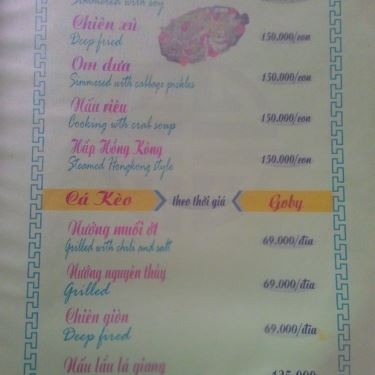 Simmered with soy
Chiên xù
Deep fried
150.000/con
Om dưa
Simmered with cabbage pickles
150.000/con
Nấu riêu
Cooking with crab soup
150.000/con
Hấp Hồng Kông
Steamed Hongkong style
150.000/con
Cá Kèo theo thời giá Goby
Nướng muối ớt
Grilled with chili and salt
69.000/đĩa
Nướng nguyên thủy
Grilled
69.000/đĩa
Chiên giòn
Deep fired
69.000/đĩa
Nấu lẩu lá giang
135.000